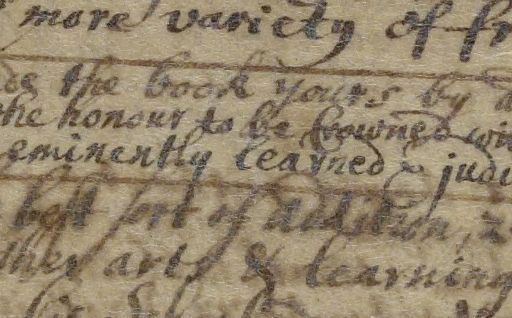 more variety of fr
the book yours by
the honour to be crowned wi
eminently learned & judi
best sort of
arts & learning